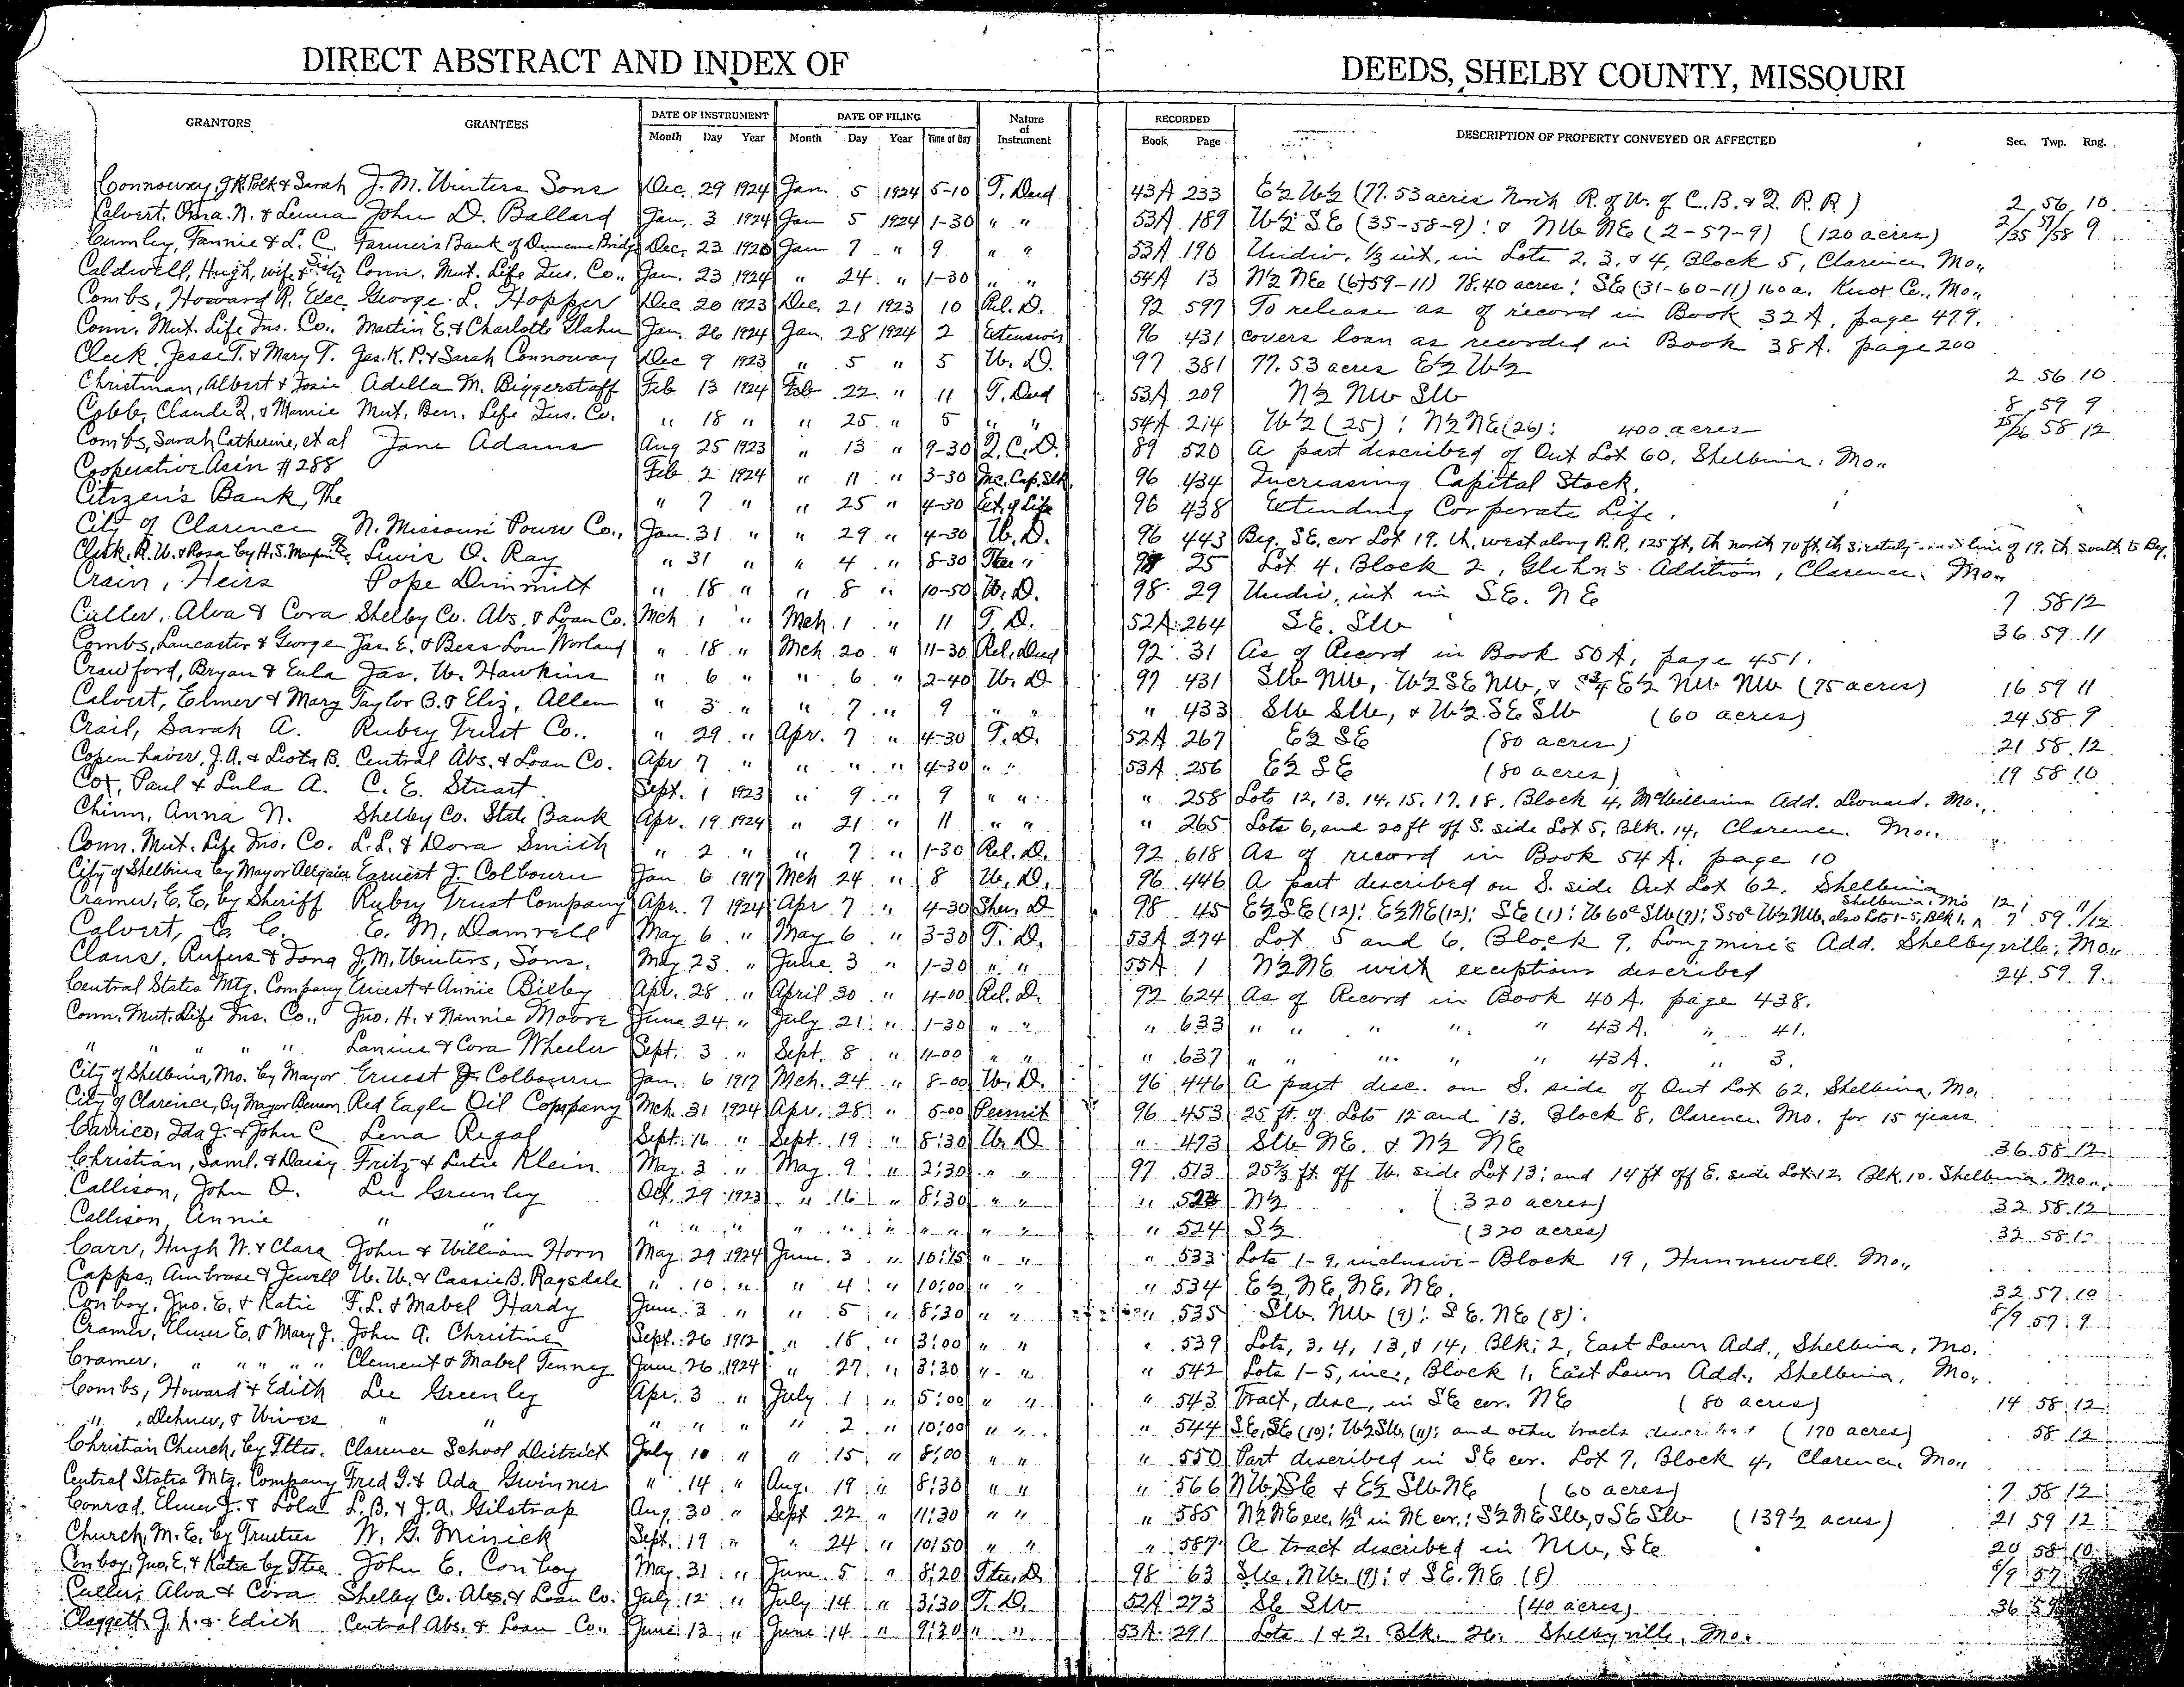 DIRECT ABSTRACT AND INDEX OF DEEDS, SHELBY COUNTY, MISSOURI
GRANTORS GRANTEES DATE OF INSTRUMENT DATE OF FILING Nature of Instrument RECORDED DESCRIPTION OF PROPERTY CONVEYED OR AFFECTED Sec. Twp. Rng.
Month Day Year Month Day Year Time of Day Book Page
Connoway, J.K. Polk & Sarah J. M. Winters Sons Dec. 29 1924 Jan. 5 1924 5-10 T. Deed 43A 233 E½ W½ (77.53 acres North R. of W. of C. B. & Q. R. R.) 2 56 10
Calvert, Oma. N. & Lenna John D. Ballard Jan. 3 1924 Jan 5 1924 1-30 " " 53A 189 W½ SE (35-58-9): & NW NE (2-57-9) (120 acres) 2/35 57/58 9
Cumley, Fannie & L. C. Farmers Bank of Duncans Bridge Dec. 23 1920 Jan 7 " 9 " " 53A 190 Undiv. 1/3 int. in Lots 2, 3, & 4, Block 5, Clarence, Mo.,
Caldwell, Hugh, wife & Conn. Mut. Life Ins. Co., Jan. 23 1924 " 24 " 1-30 " " 54A 13 N½ NE (6)59-11) 78.40 acres: SE (31-60-11) 160 a. Knox Co., Mo.,
Combs, Howard R. Exec George L. Hopper Dec 20 1923 Dec. 21 1923 10 Rel. D. 92 597 To release as of record in Book 32 A, page 479.
Conn. Mut. Life Ins. Co., Martin E. & Charlotte Glahn Jan. 26 1924 Jan. 28 1924 2 Extension 96 431 covers loan as recorded in Book 38 A. page 200
Cleek Jesse T. & Mary T. Jas. K. P. & Sarah Connoway Dec 9 1923 " 5 " 5 W. D. 97 381 77.53 acres E½ W½ 2 56 10
Christman, Albert & Josie Adella M. Biggerstaff Feb 13 1924 Feb 22 " 11 T. Deed 53A 209 N½ NW SW 8 59 9
Cobb, Claude Q, & Mamie Mut. Ben. Life Ins. Co. " 18 " " 25 " 5 " " 54A 214 W½ (25): N½ NE (26): 400 acres 25/26 58 12
Combs, Sarah Catherine, et al Jane Adams Aug 25 1923 " 13 " 9-30 Q. C. D. 89 520 A part described of Out Lot 60, Shelbina, Mo.,
Cooperative Ass'n #288 Feb 2 1924 " 11 " 3-30 Inc. Cap. Stk. 96 434 Increasing Capital Stock.
Citizen's Bank, The " 7 " " 25 " 4-30 Ext. of Life 96 438 Extending Corporate Life.
City of Clarence N. Missouri Power Co., Jan. 31 " " 29 " 4-30 W. D. 96 443 Beg. SE. cor Lot 19, th. west along R.R. 125 ft, th north 70 ft. th line of 19. th south to Beg.
Clark, R. W. & Rosa by H. S. Lewis O. Ray " 31 " " 4 " 8-30 Tr " 98 25 Lot 4, Block 2, Glahn's Addition, Clarence, Mo.,
Crain, Heirs Pope Dimmitt " 18 " " 8 " 10-50 W. D. 98 29 Undiv. int in S.E. N E 7 58 12
Culler, Alva & Cora Shelby Co. Abs. & Loan Co. Mch 1 " Mch 1 " 11 T. D. 52A 264 S.E. SW 36 59 11
Combs, Lancaster & George Jas. E. & Bess Lou Worland " 18 " Mch 20 " 11-30 Rel. Deed 92 31 As of Record in Book 50A, page 451.
Crawford, Bryan & Eula Jas. W. Hawkins " 6 " " 6 " 2-40 W. D 97 431 SW NW, W½ SE NW, & S¾ E½ NW NW (75 acres) 16 59 11
Calvert, Elmer & Mary Taylor B. & Eliz. Allen " 3 " " 7 " 9 " " " 433 SW SW, & W½ SE SW (60 acres) 24 58 9
Crail, Sarah A. Rubey Trust Co.. " 29 " Apr. 7 " 4-30 T. D. 52A 267 E½ SE (80 acres) 21 58 12
Copenhaver, J. A. & Leota B. Central Abs. & Loan Co. Apr 7 " " " " 4-30 " " 53A 256 E½ SE (80 acres) 19 58 10
Cox, Paul & Lula A. C. E. Stuart Sept. 1 1923 " 9 " 9 " " " 258 Lots 12, 13, 14, 15, 17, 18, Block 4, McWilliams Add. Leonard, Mo.,
Chinn, Anna N. Shelby Co. State Bank Apr. 19 1924 " 21 " 11 " " " 265 Lots 6, and 20 ft off S. side Lot 5, Blk. 14, Clarence, Mo.,
Conn. Mut. Life Ins. Co. L. L. & Dora Smith " 2 " " 7 " 1-30 Rel. D. 92 618 As of record in Book 54 A. page 10
City of Shelbina by Mayor Earnest J. Colbourn Jan 6 1917 Mch 24 " 8 W. D. 96 446 A part described on S. side Out Lot 62, Shelbina
Cramer, E. E. by Sheriff Rubey Trust Company Apr. 7 1924 Apr 7 " 4-30 Sher. D 98 45 E½ SE (12): E½ NE (12): SE (1): W 60a SW (7): S 50a W½ NW, also Lots 1-5, Blk 1, Shelbina, Mo 12/7 59 11/12
Calvert, C. C. E. M. Damrell May 6 " May 6 " 3-30 T. D. 53A 274 Lot 5 and 6, Block 9, Longmire's Add. Shelbyville, Mo.,
Claus, Rufus & Dona J. M. Winters, Sons. May 23 " June 3 " 1-30 " " 55A 1 N½ NE with exceptions described 24 59 9
Central States Mtg. Company Ernest & Annie Bilby Apr. 28 " April 30 " 4-00 Rel. D. 92 624 As of Record in Book 40 A. page 438.
Conn. Mut. Life Ins. Co., Jno. H. & Nannie Moore June 24 " July 21 " 1-30 " " " 633 " " " " " 43 A. " 41.
" " " " " Lanius & Cora Wheeler Sept. 3 " Sept. 8 " 11-00 " " " 637 " " " " " 43A. " 3.
City of Shelbina, Mo. by Mayor Ernest J. Colbourn Jan. 6 1917 Mch. 24 " 8-00 W. D. 96 446 A part desc. on S. side of Out Lot 62, Shelbina, Mo.
City of Clarence, By Mayor Benson Red Eagle Oil Company Mch. 31 1924 Apr. 28 " 5-00 Permit 96 453 25 ft. of Lots 12 and 13, Block 8, Clarence Mo. for 15 years.
Carrico, Ida J. & John C. Lena Regal Sept. 16 " Sept. 19 " 8:30 W. D " 473 SW NE. & N½ NE 36 58 12
Christian, Saml. & Daisy Fritz & Lutie Klein. May 3 " May 9 " 2:30 " " 97 513 25⅔ ft. off W. side Lot 13; and 14 ft off E. side Lot 12, Blk. 10. Shelbina, Mo.,
Callison, John O. Lee Greenley Oct. 29 1923 " 16 " 8:30 " " " 523 N½ (320 acres) 32 58 12
Callison, Annie " " " " " " " " " " " " " 524 S½ (320 acres) 32 58 12
Carr, Hugh W. & Clara John & William Horn May 29 1924 June 3 " 10:15 " " " 533 Lots 1-9, inclusive- Block 19, Hunnewell, Mo.,
Capps, Ambrose & Jewell W. W. & Cassie B. Ragsdale " 10 " " 4 " 10:00 " " " 534 E½, NE, NE, NE. 32 57 10
Conboy, Jno. E. & Katie F. L. & Mabel Hardy June 3 " " 5 " 8:20 " " " 535 SW. NW (9): SE. NE (8). 8/9 57 9
Cramer, Elmer E. & Mary J. John A. Christine Sept. 26 1912 " 18 " 3:00 " " " 539 Lots, 3, 4, 13, & 14, Blk: 2, East Lawn Add., Shelbina, Mo.
Cramer, " " " " " Clement & Mabel Tenney June 26 1924 " 27 " 3:30 " " " 542 Lots 1-5, inc., Block 1, East Lawn Add., Shelbina, Mo.,
Combs, Howard & Edith Lee Greenley Apr. 3 " July 1 " 5:00 " " " 543 Tract, desc. in SE cor. NE (80 acres) 14 58 12
" , Dehner, & Wives " " " " " " 2 " 10:00 " " " 544 SE, SE (10): W½ SW, (11): and other tracts described (170 acres) 58 12
Christian Church, by Ttes. Clarence School District July 10 " " 15 " 8:00 " " " 550 Part described in SE cor. Lot 7, Block 4, Clarence, Mo.,
Central States Mtg. Company Fred G. & Ada Gwinner " 14 " Aug. 19 " 8:30 " " " 566 NW, SE & E½ SW NE (60 acres) 7 58 12
Conrad, Elmer J. & Lola L. B. & J. A. Gilstrap Aug. 30 " Sept 22 " 11:30 " " " 585 N½ NE exc. ½a in NE cor.: S½ NE SW, & SE SW (139½ acres) 21 59 12
Church, M. E. by Trustees W. G. Minick Sept. 19 " " 24 " 10:50 " " " 587 A tract described in NW, SE 20 58 10
Conboy, Jno. E. & Katie by Ttee. John E. Conboy May 31 " June 5 " 8:20 Ttee. D. 98 63 SW, NW. (9): & SE. NE (8) 8/9 57
Culler, Alva & Cora Shelby Co. Abs. & Loan Co. July 12 " July 14 " 3:30 T. D. 52A 273 SE SW (40 acres) 36 59
Claggett J. A. & Edith Central Abs. & Loan Co., June 13 " June 14 " 9:30 " " 53A 291 Lots 1 & 2, Blk. 26, Shelbyville, Mo.